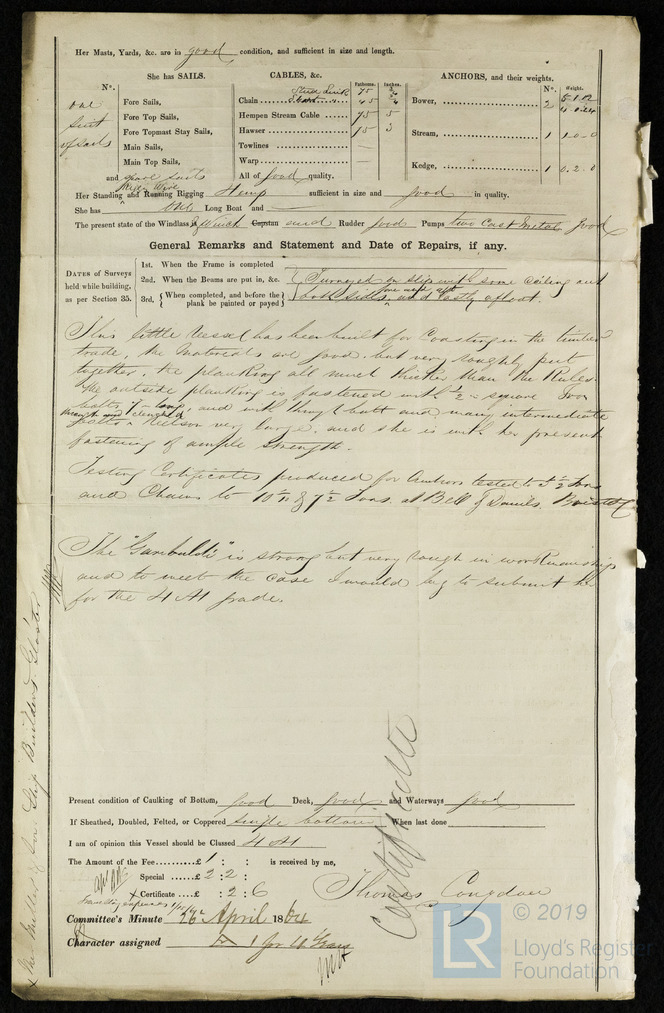 Her Masts, Yards, &c. are in good condition, and sufficient in size and length.
She has SAILS.
CABLES, &c.
ANCHORS, and their weights.
No.
Fathoms.
Inches.
No.
Weight.
one
suit
of sails
Fore Sails,
Fore Top Sails,
Fore Topmast Stay Sails,
Main Sails,
Main Top Sails,
and spare suits
Chain Stud Link 75
Short 45
Hempen Stream Cable 75 5
Hawser 75 3
Towlines
Warp
All of good quality.
Bower, 2 5.1.02
4.0.24
Stream, 1 1.0.0
Kedge, 1 0.2.0
Her Standing and Running Rigging Hemp sufficient in size and good in quality.
She has one Long Boat and
The present state of the Windlass is & Winch Capstan and Rudder good Pumps two Cast Metal good
General Remarks and Statement and Date of Repairs, if any.
DATES of Surveys
held while building,
as per Section 35.
1st. When the Frame is completed
2nd. When the Beams are put in, &c.
3rd, When completed, and before the
plank be painted or payed
Surveyed on slip with some ceiling out
both sides fore and aft and lastly afloat.
This little Vessel has been built for Coasting in the timber
trade, the Materials are good but very roughly put
together, the planking all much thicker than the Rules.
The outside planking is fastened with 1/2 in square Iron
bolts 7 in long and with through butt and many intermediate
through and clenched
bolts. Keelson very large, and she is with her present
fastening of ample strength.
Testing Certificates produced for Anchors tested to 5 1/2 Tons
and Chains to 10 & 7 1/2 Tons. at Bell & Daniels. Bristol
The "Garibaldi" is strong but very rough in workmanship
and to meet the case I would beg to submit her
for the 4 A1 grade.
Present condition of Caulking of Bottom, good Deck, good and Waterways good
If Sheathed, Doubled, Felted, or Coppered single bottom When last done
I am of opinion this Vessel should be Classed 4 A1
The Amount of the Fee £ 1 : : is received by me,
Special £ 2 : 2 :
Certificate : 2 : 6
Travelling expenses
Thomas Congdon
Committee's Minute 26th April 1864
Character assigned A 1 for 4 Years
Certificate
© 2019
LR
Lloyd's Register
Foundation